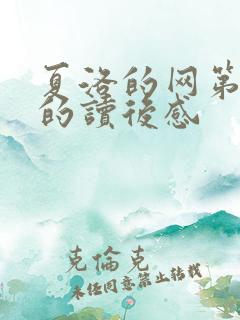 夏洛的网第
的讀後感
克倫克
未经同意禁止转载